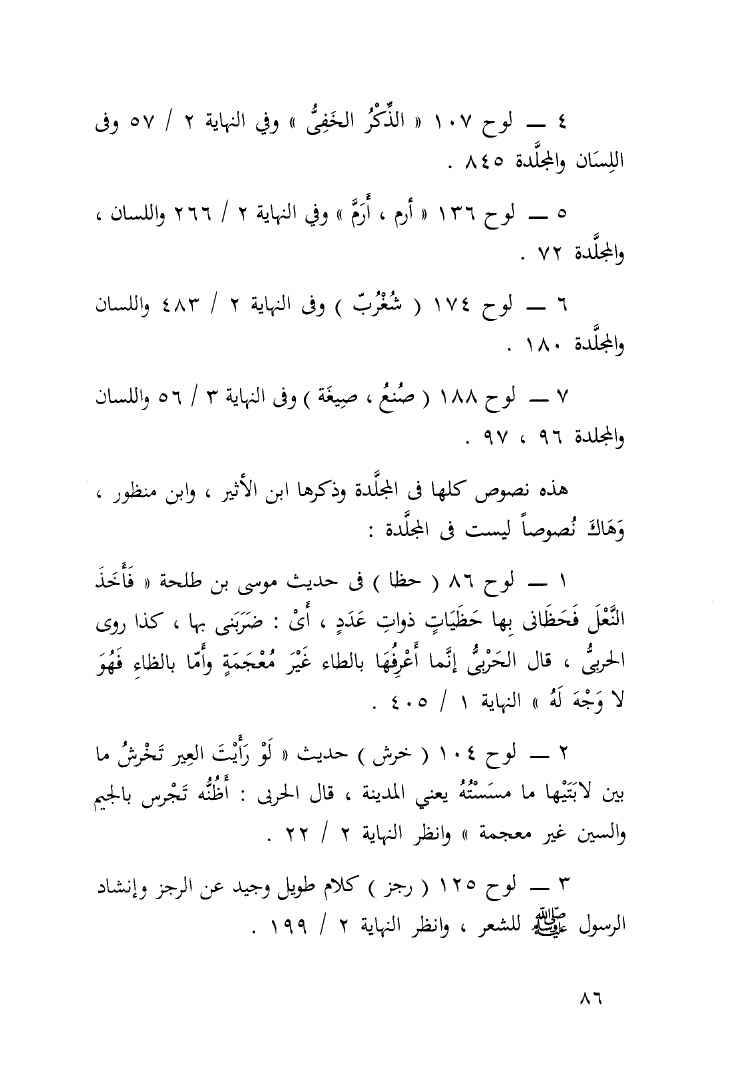 ٤ — لوح ١٠٧ « الذِّكْرُ الخَفِىُّ » وفي النهاية ٢ / ٥٧ وفى
اللِسَان والمجلَّدة ٨٤٥ .
٥ — لوح ١٣٦ « أرم ، أَرَمَّ » وفي النهاية ٢ / ٢٦٦ واللسان ،
والمجلَّدة ٧٢ .
٦ — لوح ١٧٤ ( شُغْرُبّ ) وفى النهاية ٢ / ٤٨٣ واللسان
والمجلَّدة ١٨٠ .
٧ — لوح ١٨٨ ( صُنعُ ، صِيغَة ) وفى النهاية ٣ / ٥٦ واللسان
والمجلدة ٩٦ ، ٩٧ .
هذه نصوص كلها فى المجلَّدة وذكرها ابن الأثير ، وابن منظور ،
وَهَاكَ نُصوصاً ليست فى المجلَّدة :
١ — لوح ٨٦ ( حظا ) فى حديث موسى بن طلحة « فَأَخَذَ
النَّعْلَ فَحَظَانى بِها حَظَيَاتٍ ذواتِ عَدَدٍ ، أَىْ : ضَرَبَنى بها ، كذا روى
الحربىُّ ، قال الحَرْبىُّ إنَّما أَعْرِفُهَا بالطاء غَيْرَ مُعْجَمَةٍ وأَمّا بالظاءِ فَهُوَ
لا وَجْهَ لَهُ » النهاية ١ / ٤٠٥ .
٢ — لوح ١٠٤ ( خرش ) حديث « لَوْ رَأَيْتَ العِير تَخْرشُ ما
بين لابَتَيْها ما مسَسْتُهُ يعني المدينة ، قال الحربى : أَظُنُّه تَجْرس بالجيم
والسين غير معجمة » وانظر النهاية ٢ / ٢٢ .
٣ — لوح ١٢٥ ( رجز ) كلام طويل وجيد عن الرجز وإنشاد
الرسول ﷺ للشعر ، وانظر النهاية ٢ / ١٩٩ .
٨٦